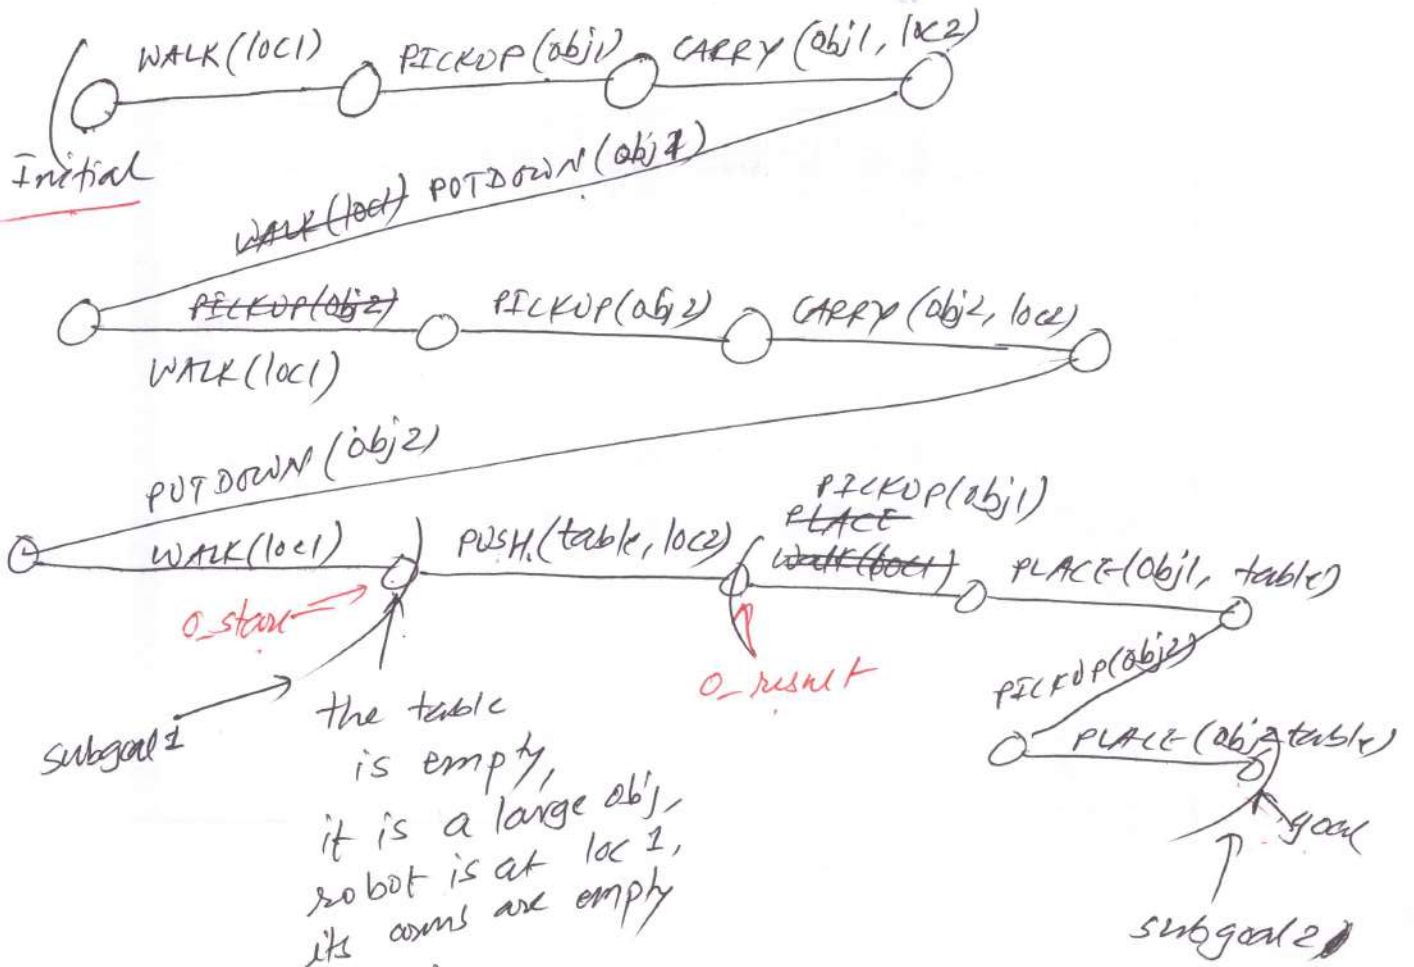 WALK(loc1) PICKUP(obj1) CARRY(obj1, loc2)
Initial
WALK(loc1) PUTDOWN(obj1)
PICKUP(obj2) PICKUP(obj2) CARRY(obj2, loc2)
WALK(loc1)
PUTDOWN(obj2)
PICKUP(obj1)
PLACE
WALK(loc1) PUSH(table, loc2) Walk(loc1) PLACE(obj1, table)
O_start
O_result
PICKUP(obj2)
subgoal1
the table
is empty,
it is a large obj,
robot is at loc 1,
its arms are empty
PLACE(obj2 table)
goal
subgoal2